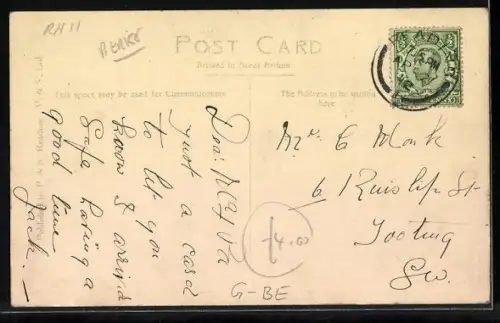 RH11
POST CARD
Printed in
This space may be used for Communications
The Address to be
here
Dear
Just a card
to let you
know I arrived
Safe having a
good time
Jack. —
Mr. C Monk
6 Ruislip St
Tooting
S.W.
£4.00
G-BE